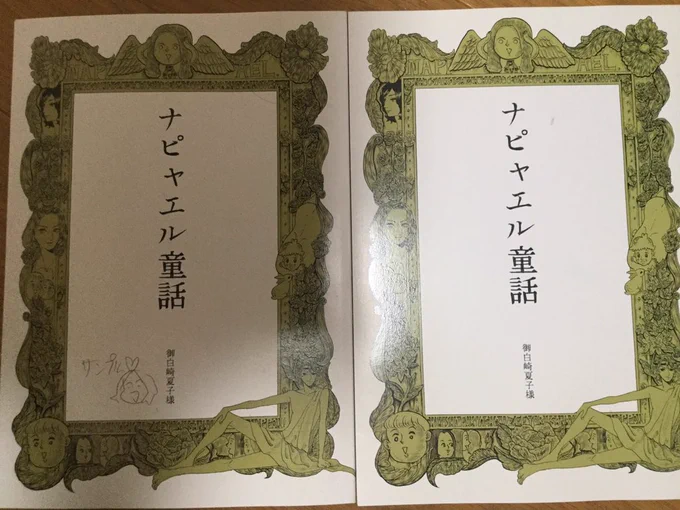 ナピャエル童話
御白崎夏子様
サンプル
ナピャエル童話
御白崎夏子様